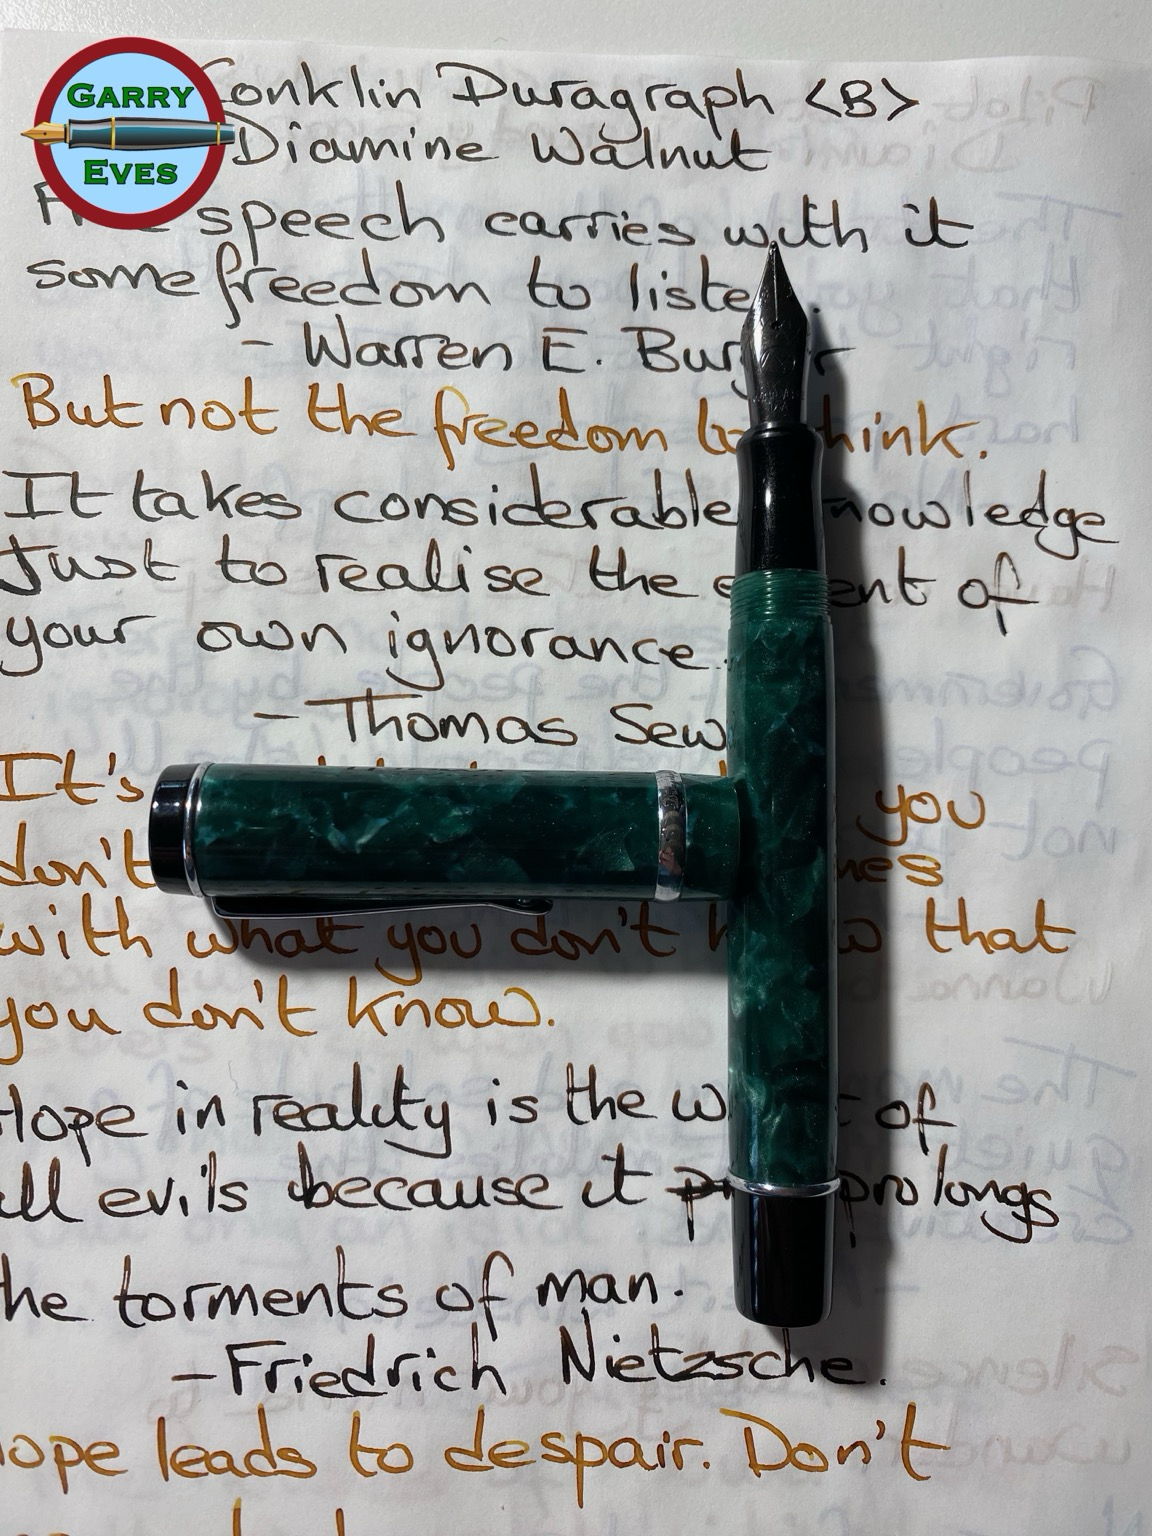 GARRY
EVES
Conklin Duragraph <B>
Diamine Walnut
speech carries with it
some freedom to liste
- Warren E. Bur
But not the freedom to think.
It takes considerable knowledge
Just to realise the extent of
your own ignorance.
- Thomas Sew
It's you
don't
with what you don't know that
you don't know.
Hope in reality is the of
all evils because it prolongs
the torments of man.
- Friedrich Nietzsche.
Hope leads to despair. Don't